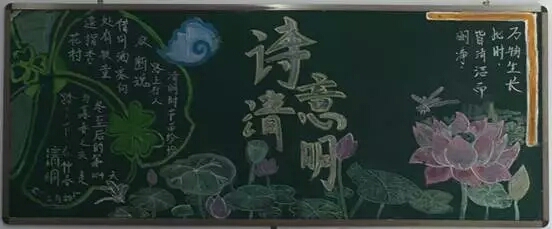 诗意清明
万物生长
此时，
皆清洁而
明净。
清明时节雨纷纷
路上行人
欲断魂
借问酒家何
处有牧童
遥指杏
花村
冬至后的第104
天
清明